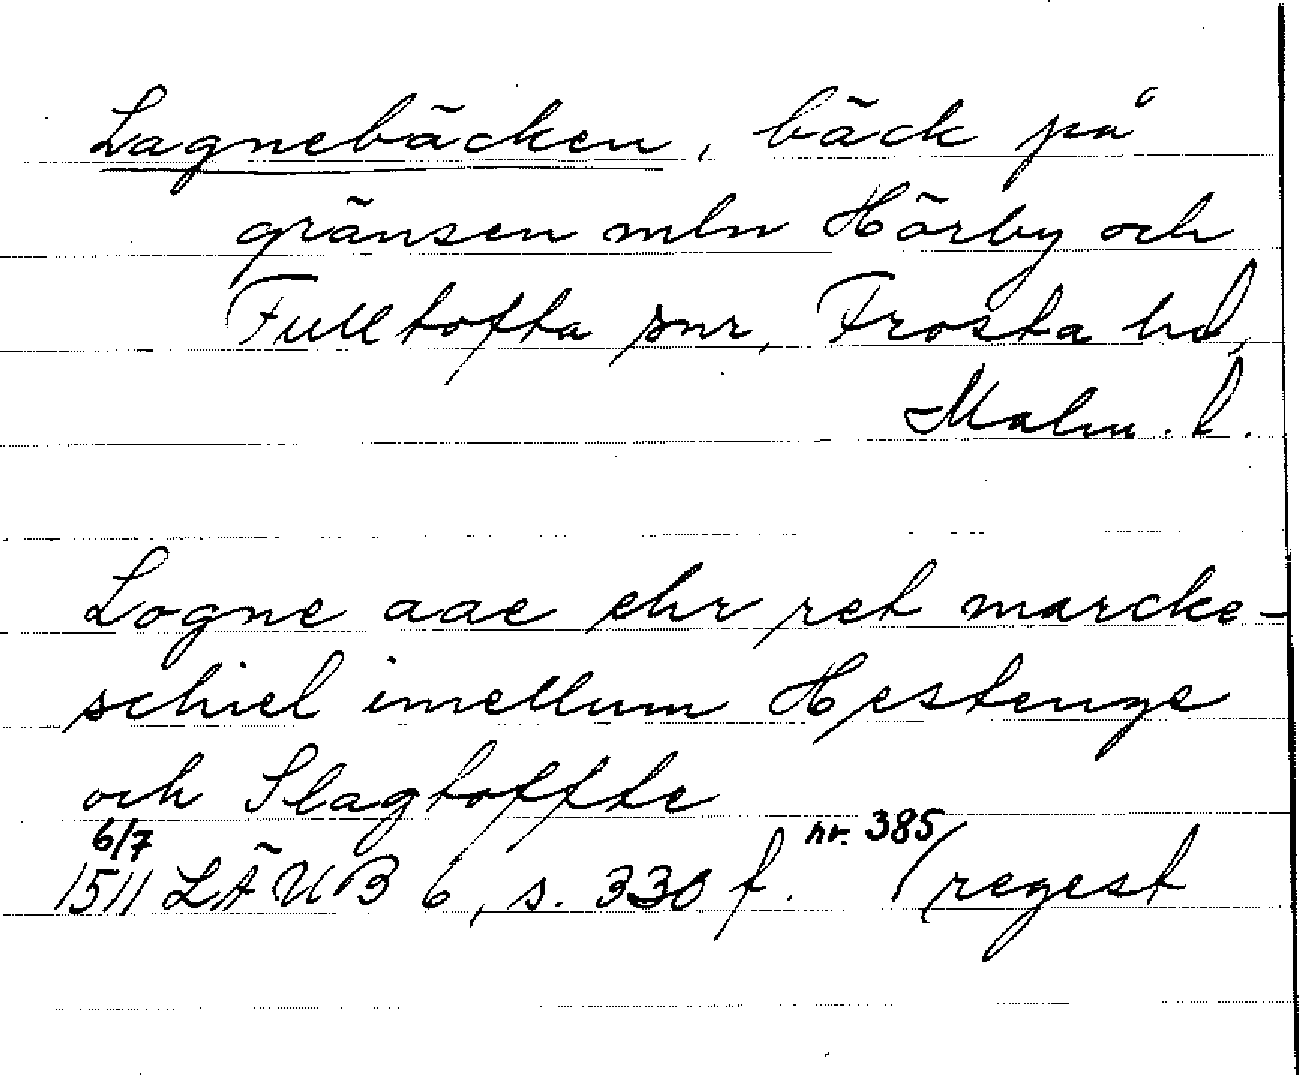 Lagnebäcken, bäck på
gränsen mln Hörby och
Fulltofta snr, Frosta hd,
Malm. l.
Logne aae ehr ret marcke-
schiel imellum Hestenge
och Slagtoffte
6/7 nr. 385
1511 LÄUB 6, s. 330 f. (regest